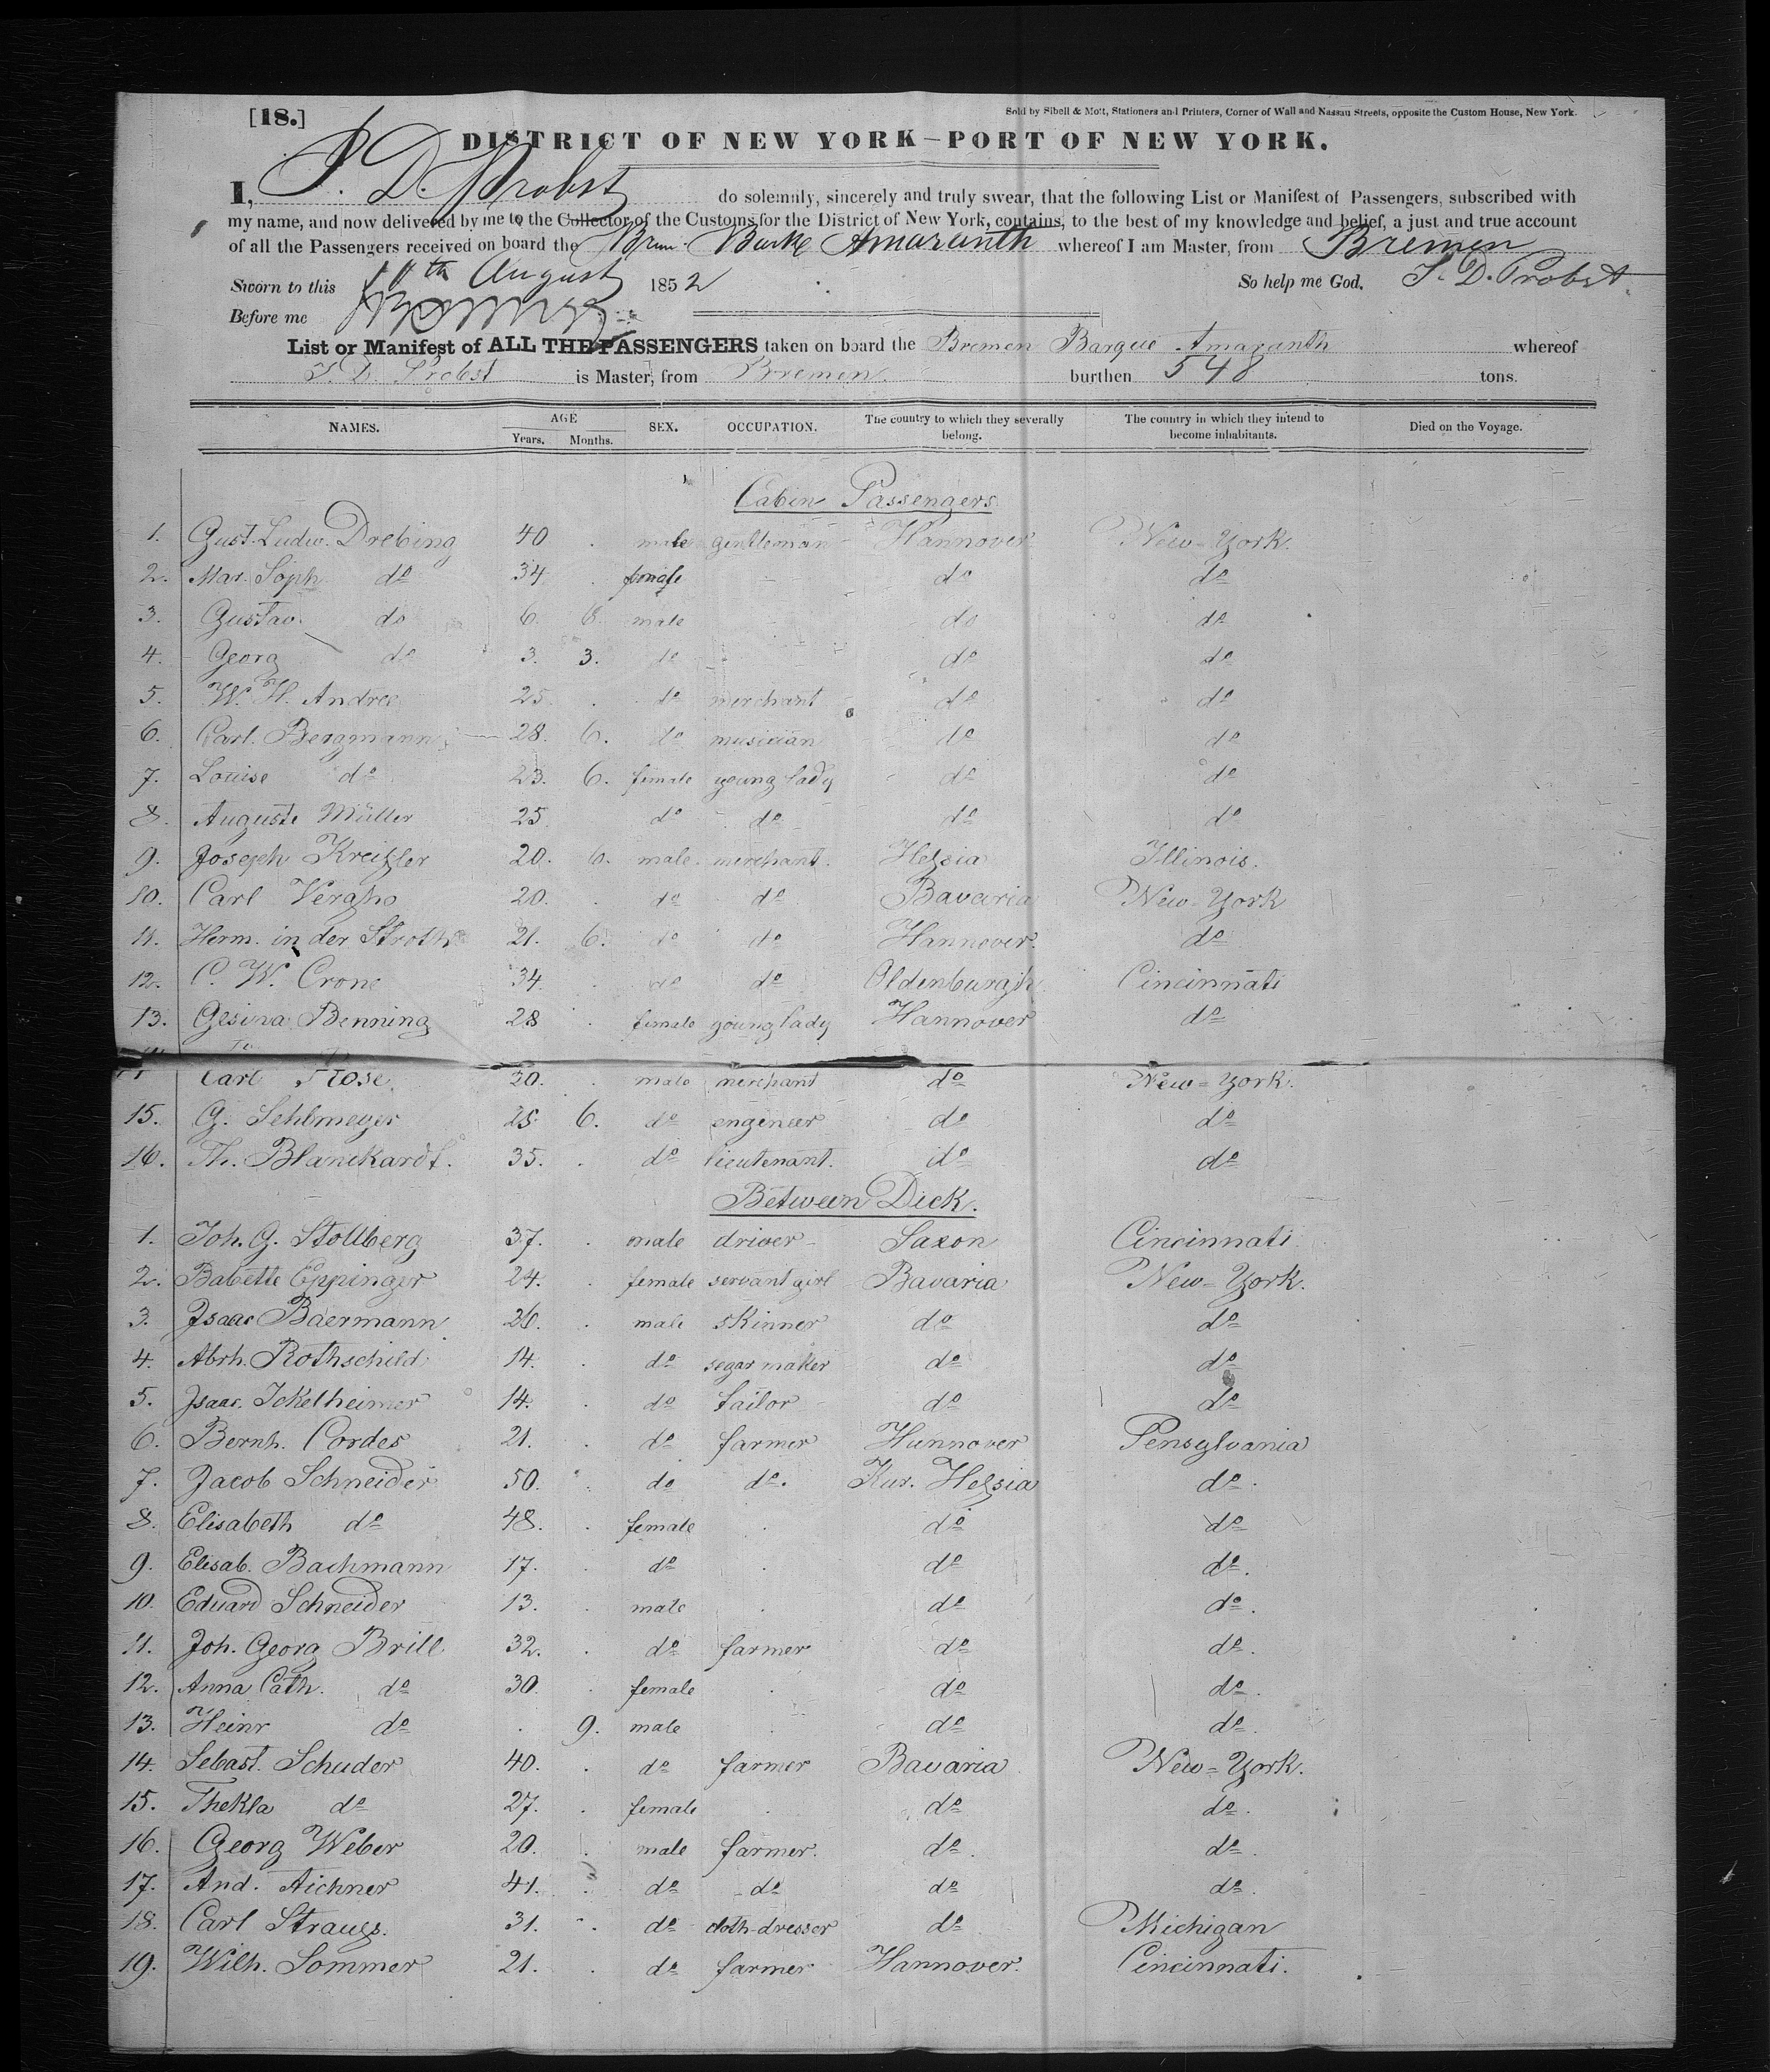 [18.]
Sold by Sibell & Mott, Stationers and Printers, Corner of Wall and Nassau Streets, opposite the Custom House, New York.
DISTRICT OF NEW YORK—PORT OF NEW YORK.
I, J. D. Probst do solemnly, sincerely and truly swear, that the following List or Manifest of Passengers, subscribed with
my name, and now delivered by me to the Collector of the Customs for the District of New York, contains, to the best of my knowledge and belief, a just and true account
of all the Passengers received on board the Brem. Barke Amaranth whereof I am Master, from Bremen
Sworn to this August 1852 So help me God. J. D. Probst.
Before me
List or Manifest of ALL THE PASSENGERS taken on board the Bremen Barque Amaranth whereof
J. D. Probst is Master, from Bremen. burthen 548 tons.
NAMES. AGE Years. Months. SEX. OCCUPATION. The country to which they severally belong. The country in which they intend to become inhabitants. Died on the Voyage.
Cabin Passengers
1. Gust. Ludw. Drebing 40 . male gentleman Hannover New-York.
2. Mar. Soph do 34 . female do do
3. Gustav. do 6. 6. male do do
4. Georg do 3. 3. do do do
5. W. H. Andree 25 . do merchant do do
6. Carl. Bergmann 28. 6. do musician do do
7. Louise do 23. 6. female young lady do do
8. Auguste Müller 25 do do do do
9. Joseph Kreitzler 20. 6. male. merchant. Hessia Illinois.
10. Carl Vergho 20. . do do Bavaria New-York
11. Herm. in der Stroth 21. 6. do do Hannover. do
12. C. W. Crone 34. . do do Oldenburgh Cincinnati
13. Gesina Benning 28 . female young lady Hannover do
Carl Rose. 30. . male merchant do New-York.
15. G. Sehlmeyer 25. 6. do engeneer do do
16. Th. Blanckardt. 35. . do lieutenant. do do
Between Deck.
1. Joh. G. Stollberg 37. . male driver Saxon Cincinnati
2. Babette Eppinger 24. . female servant girl Bavaria New-York.
3. Isaac Baermann 26. . male skinner do do
4. Abrh. Rothschild 14. . do segar maker do do
5. Isaac. Ickelheimer 14. . do tailor do do
6. Bernh. Cordes 21. . do farmer Hannover Pensylvania
7. Jacob Schneider 50. . do do. Kur. Hessia do.
8. Elisabeth do 48. . female . do do
9. Elisab. Bachmann 17. . do . do do.
10. Eduard Schneider 13. . male . do do.
11. Joh. Georg Brill 32. . do farmer do do.
12. Anna Cath. do 30. . female . do do.
13. Heinr do . 9. male . do do.
14. Sebast. Schuder 40. . do farmer Bavaria New-York.
15. Thekla do 27. . female . do do.
16. Georg Weber 20. . male farmer. do. do.
17. And. Aichner 41. . do do do do.
18. Carl Strauss. 31. . do cloth-dresser do Michigan
19. Wilh. Sommer 21. . do farmer Hannover. Cincinnati.